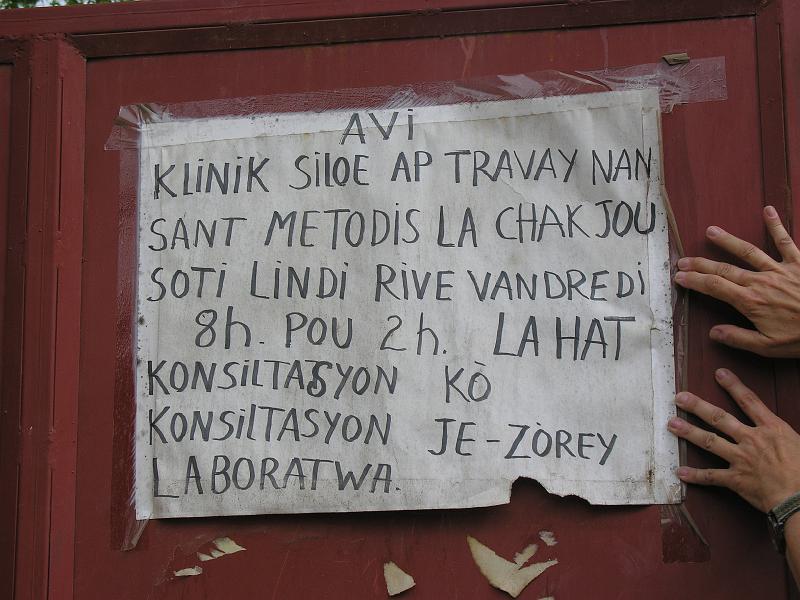 AVi
KLiNiK SiLOE AP TRAVAY NAN
SANT METODiS LA CHAK JOU
SOTi LiNDi RiVE VANDREDi
8h. POU 2h. LA HAT
KONSiLTASYON KÒ
KONSiLTASYON JE-ZÒREY
LABORATWA.